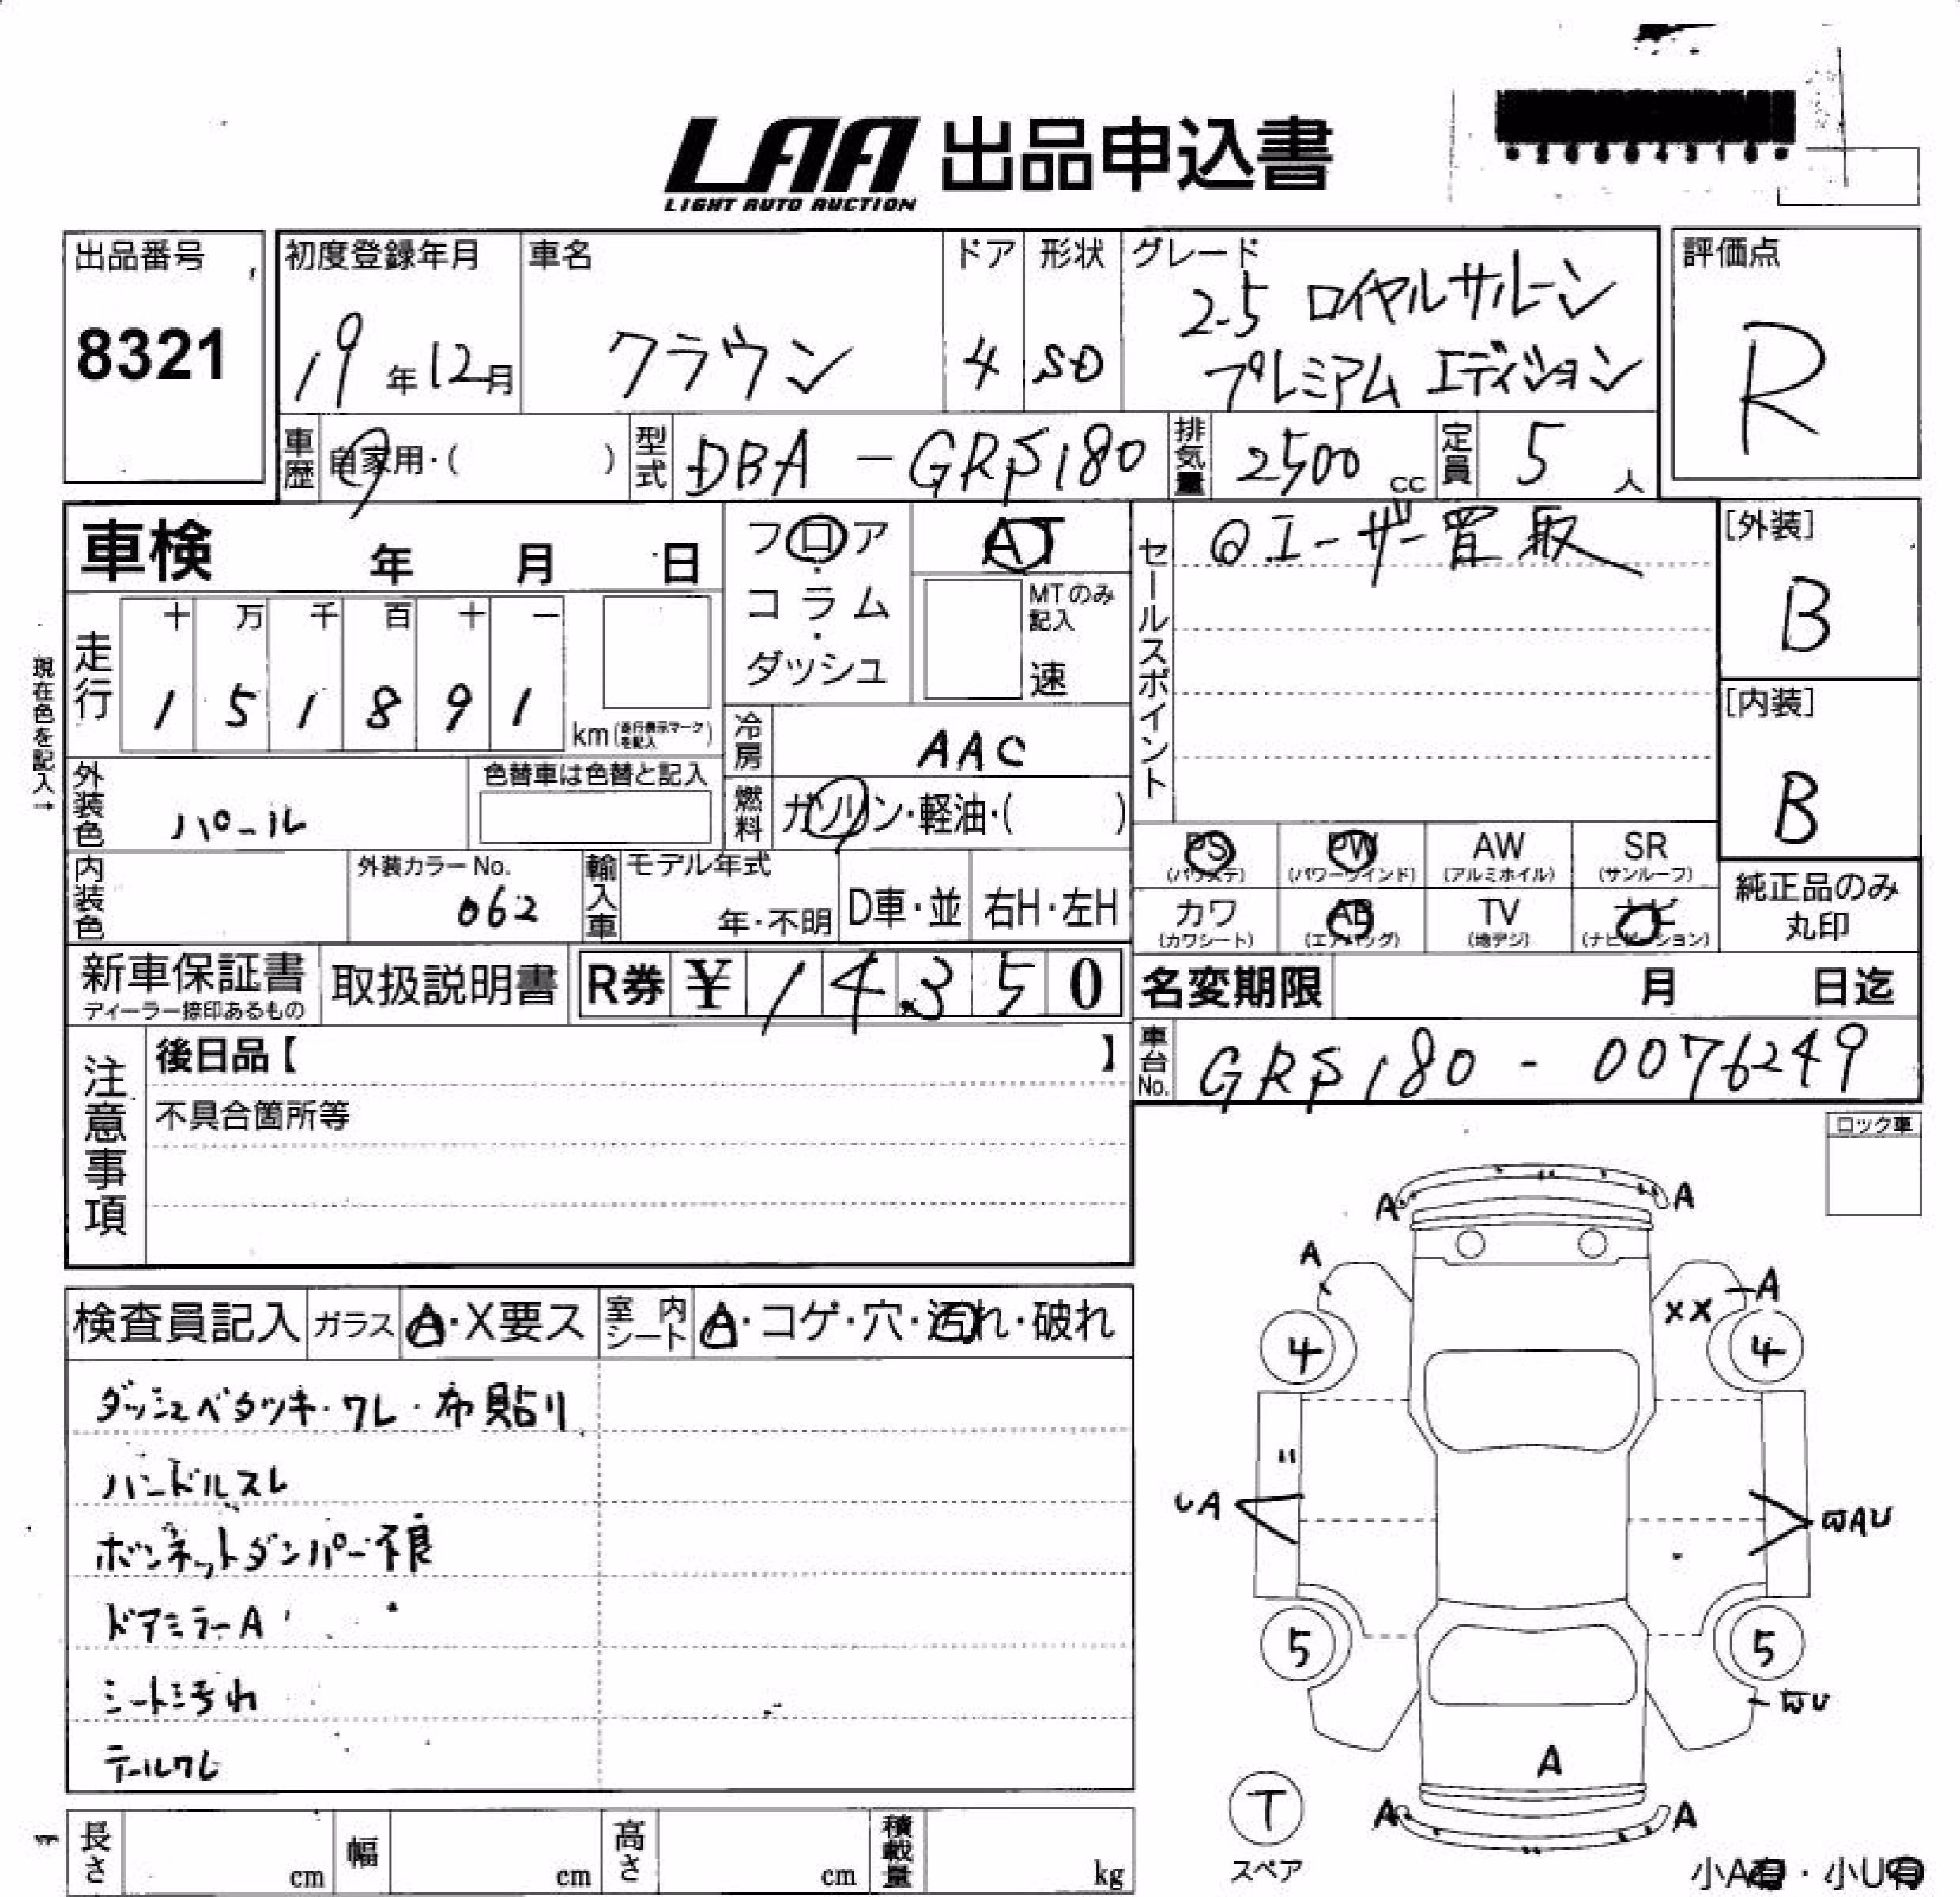 LAA 出品申込書
LIGHT AUTO AUCTION
出品番号
8321
初度登録年月
19年12月
車名
クラウン
ドア
4
形状
SD
グレード
2.5 ロイヤルサルーン
プレミアム エディション
評価点
R
車歴
自家用・( )
型式
DBA-GRS180
排気量
2500 cc
定員
5 人
車検 年 月 日
フロア
・
コラム
・
ダッシュ
AT
MTのみ
記入
速
セールスポイント
◎ユーザー買取
[外装]
B
[内装]
B
現在色を記入→
走行
十 万 千 百 十 一
1 5 1 8 9 1
km(走行表示マークを記入)
冷房
AAC
外装色
パール
色替車は色替と記入
燃料
ガソリン・軽油・( )
PS
(パワステ)
PW
(パワーウインド)
AW
(アルミホイル)
SR
(サンルーフ)
カワ
(カワシート)
AB
(エアバッグ)
TV
(地デジ)
ナビ
(ナビゲーション)
純正品のみ
丸印
内装色
外装カラーNo.
062
輸入車
モデル年式
年・不明
D車・並
右H・左H
新車保証書
ディーラー捺印あるもの
取扱説明書
R券 ¥ 14,350
名変期限 月 日迄
車台No.
GRS180-0076249
注意事項
後日品【 】
不具合箇所等
ロック車
検査員記入
ガラス
A・X要ス
室内シート
A・コゲ・穴・汚れ・破れ
ダッシュベタツキ・ワレ・布貼り
ハンドルスレ
ボンネットダンパー不良
ドアミラーA
シート汚れ
テールワレ
A A
A
XX A
4 4
UA
WAU
5 5
WU
A
T
スペア
A A
長さ cm
幅 cm
高さ cm
積載量 kg
小A有・小U有